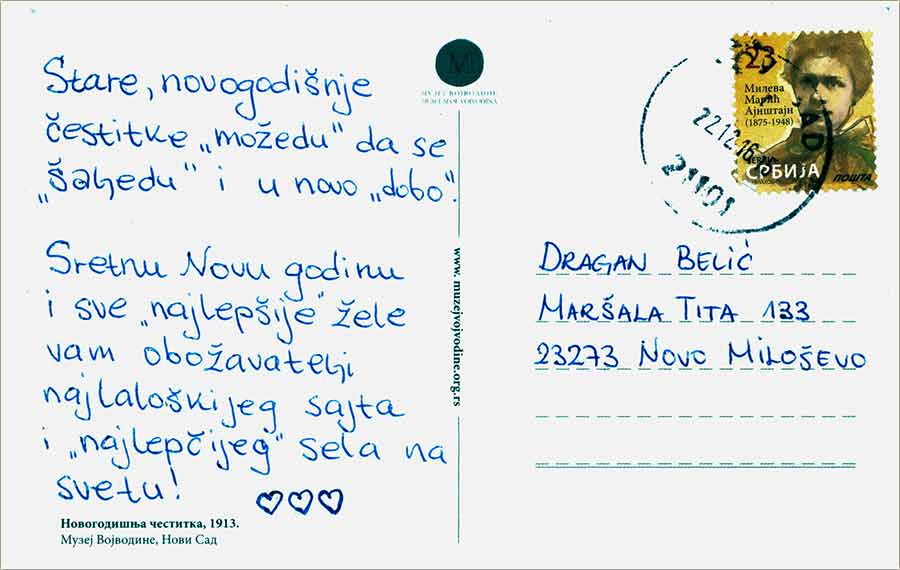 Stare, novogodišnje
čestitke „možedu" da se
„šaljedu" i u novo „dobo".
Sretnu Novu godinu
i sve „najlepšije" žele
vam obožavatelji
najlaloškijeg sajta
i „najlepčijeg" sela na
svetu!
Новогодишња честитка, 1913.
Музеј Војводине, Нови Сад
М
МУЗЕЈ ВОЈВОДИНЕ
MUSEUM OF VOJVODINA
www.muzejvojvodine.org.rs
23
Милева
Марић
Ајнштајн
(1875-1948)
СРБИЈА
ПОШТА
21101
DRAGAN BELIĆ
MARŠALA TITA 133
23273 NOVO MILOŠEVO